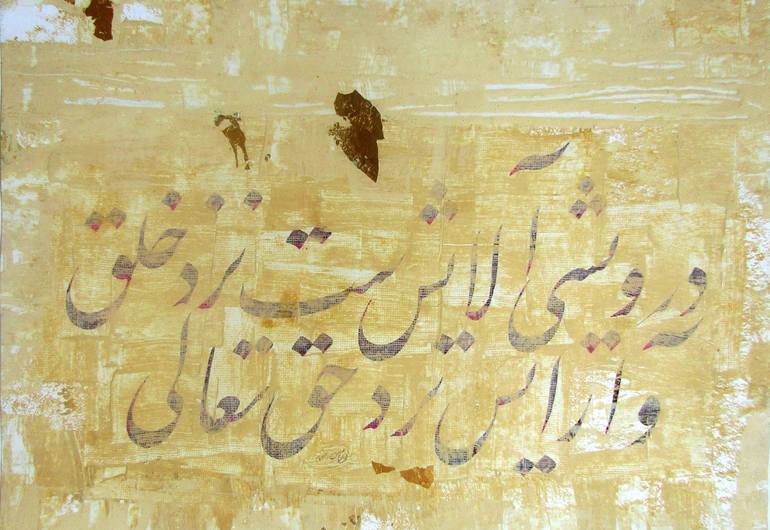 درویشی آلایش است نزد خلق
و آرایش نزد حق تعالی